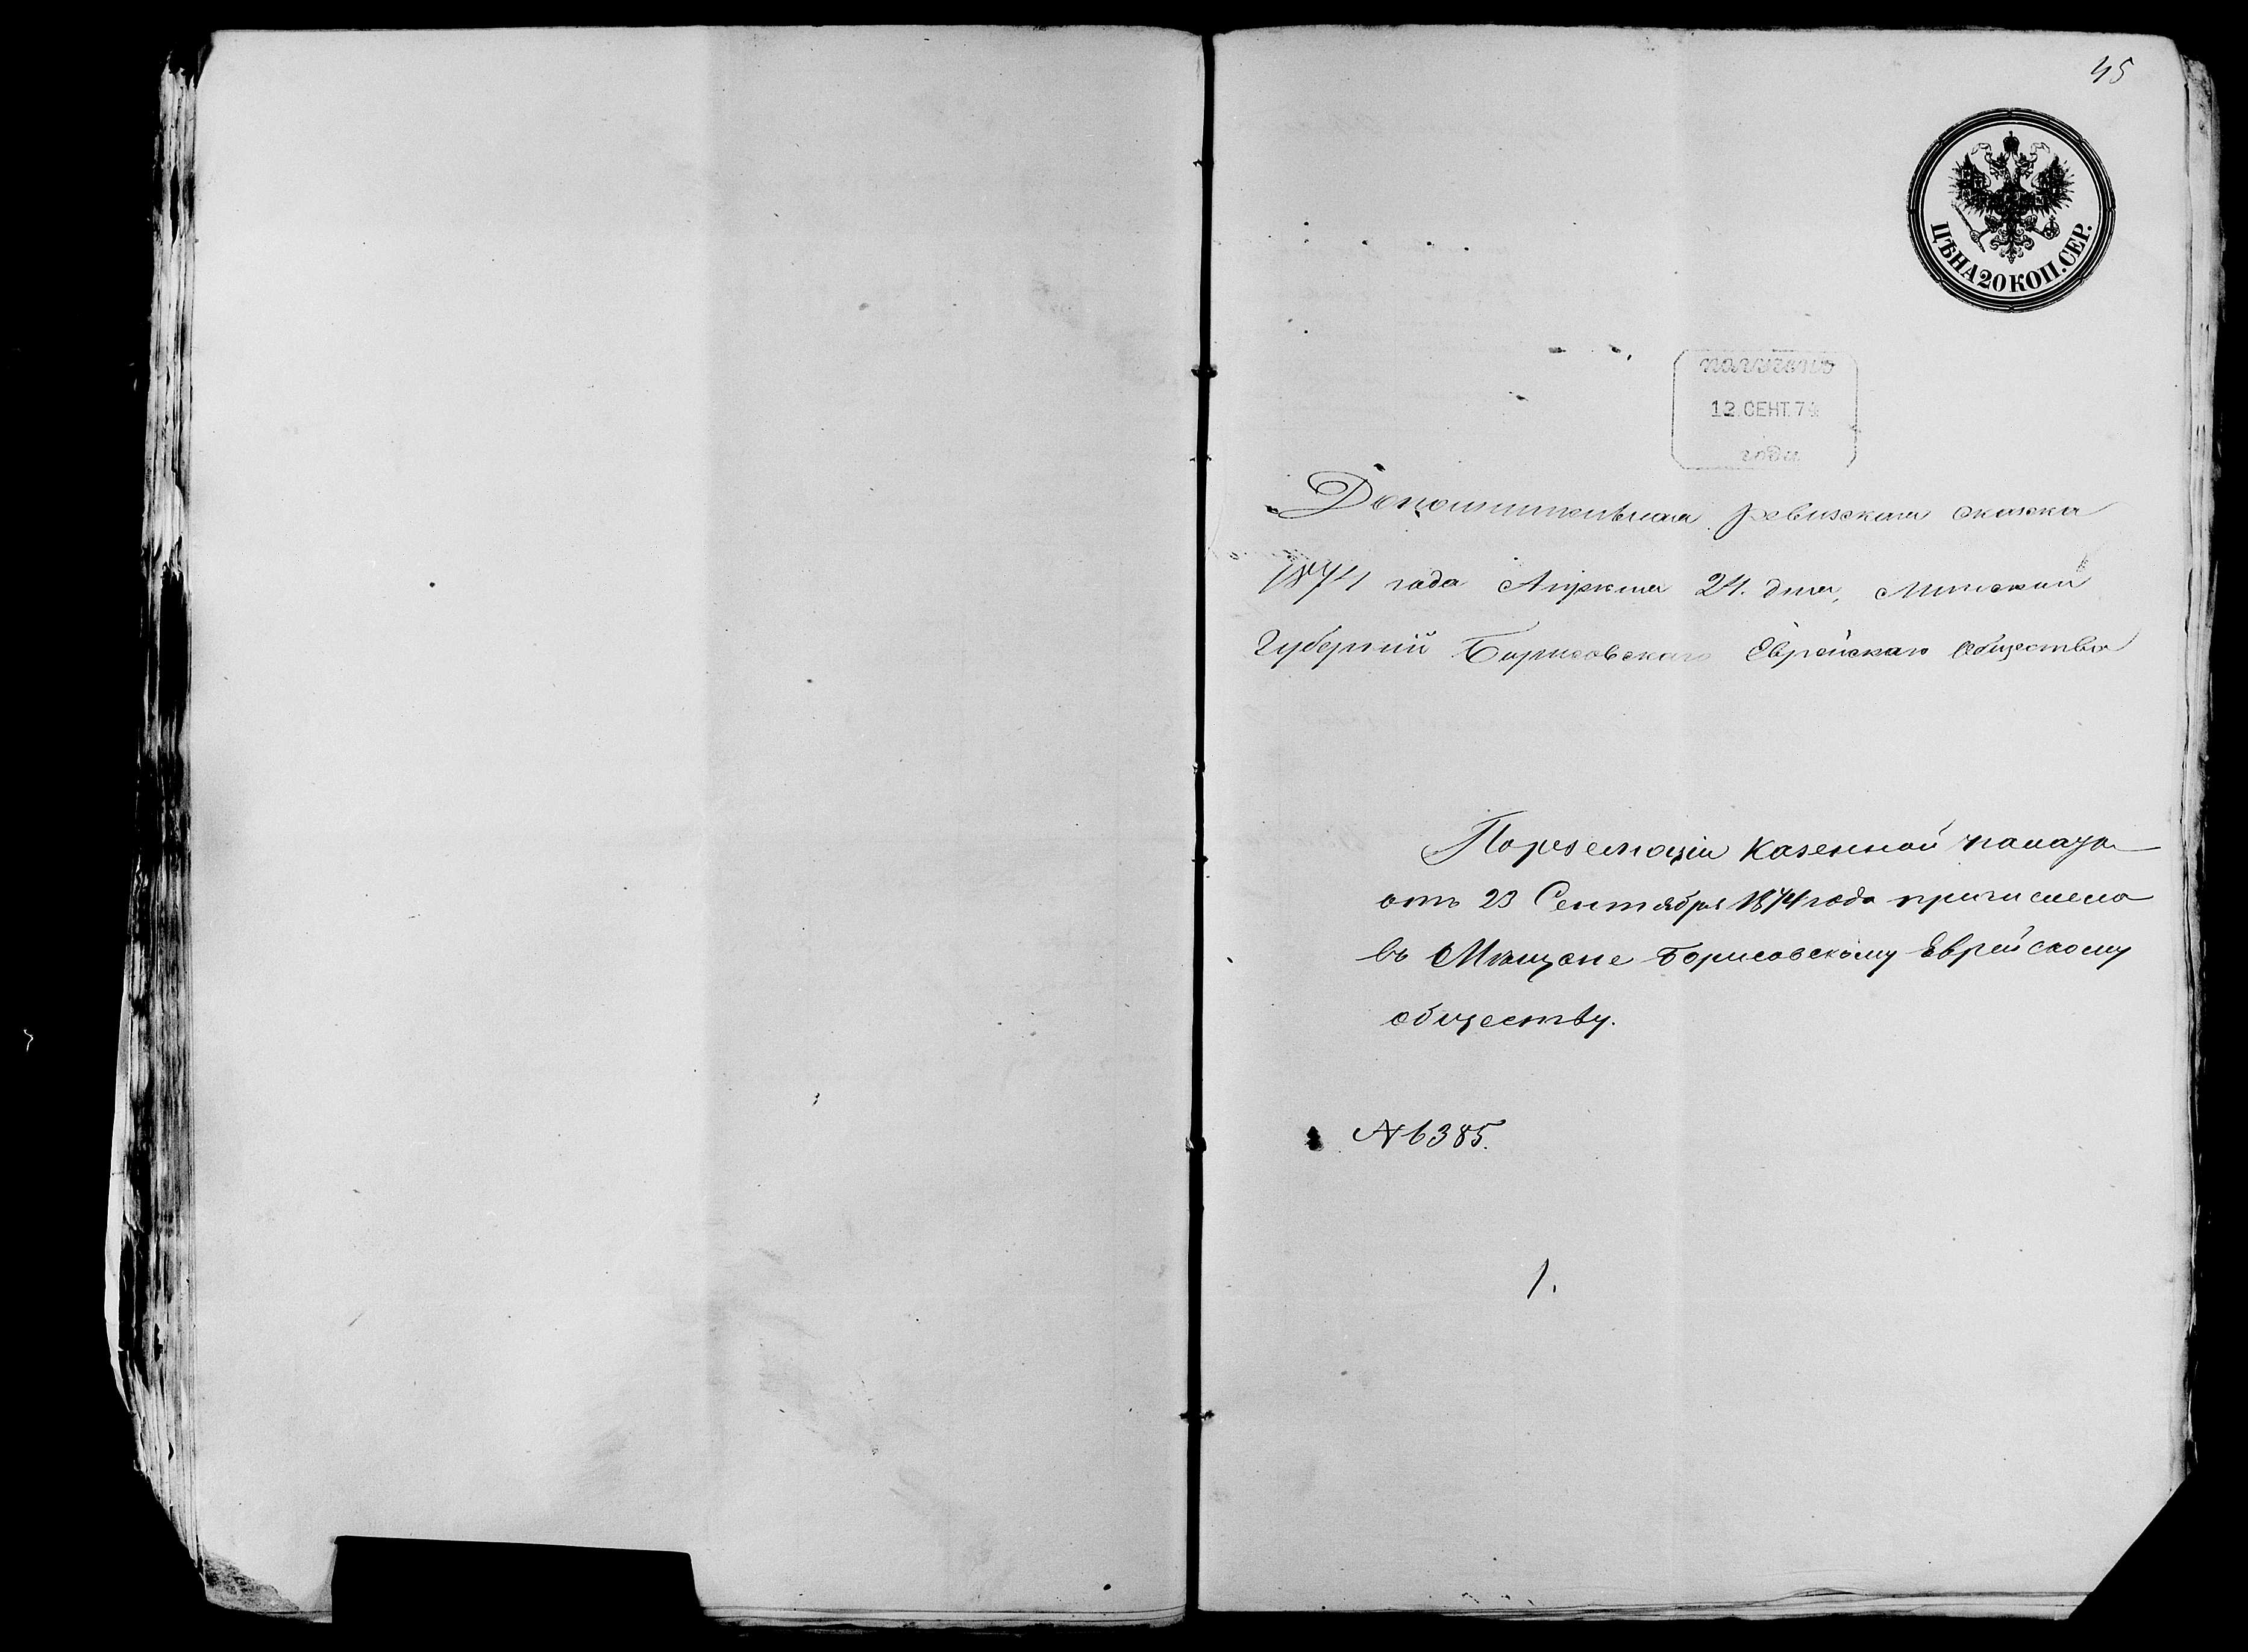 45
ЦѢНА 20 КОП. СЕР.
получено
12 СЕНТ. 74
года
Дополнительная ревизская сказка
1874 года Апреля 24. дня, Минской
Губерніи Борисовскаго Еврейскаго Общества
По резолюціи Казенной палаты
отъ 23 Сентября 1874 года причислено
въ Мѣщане Борисовскому Еврейскому
обществу.
№ 6385.
1.